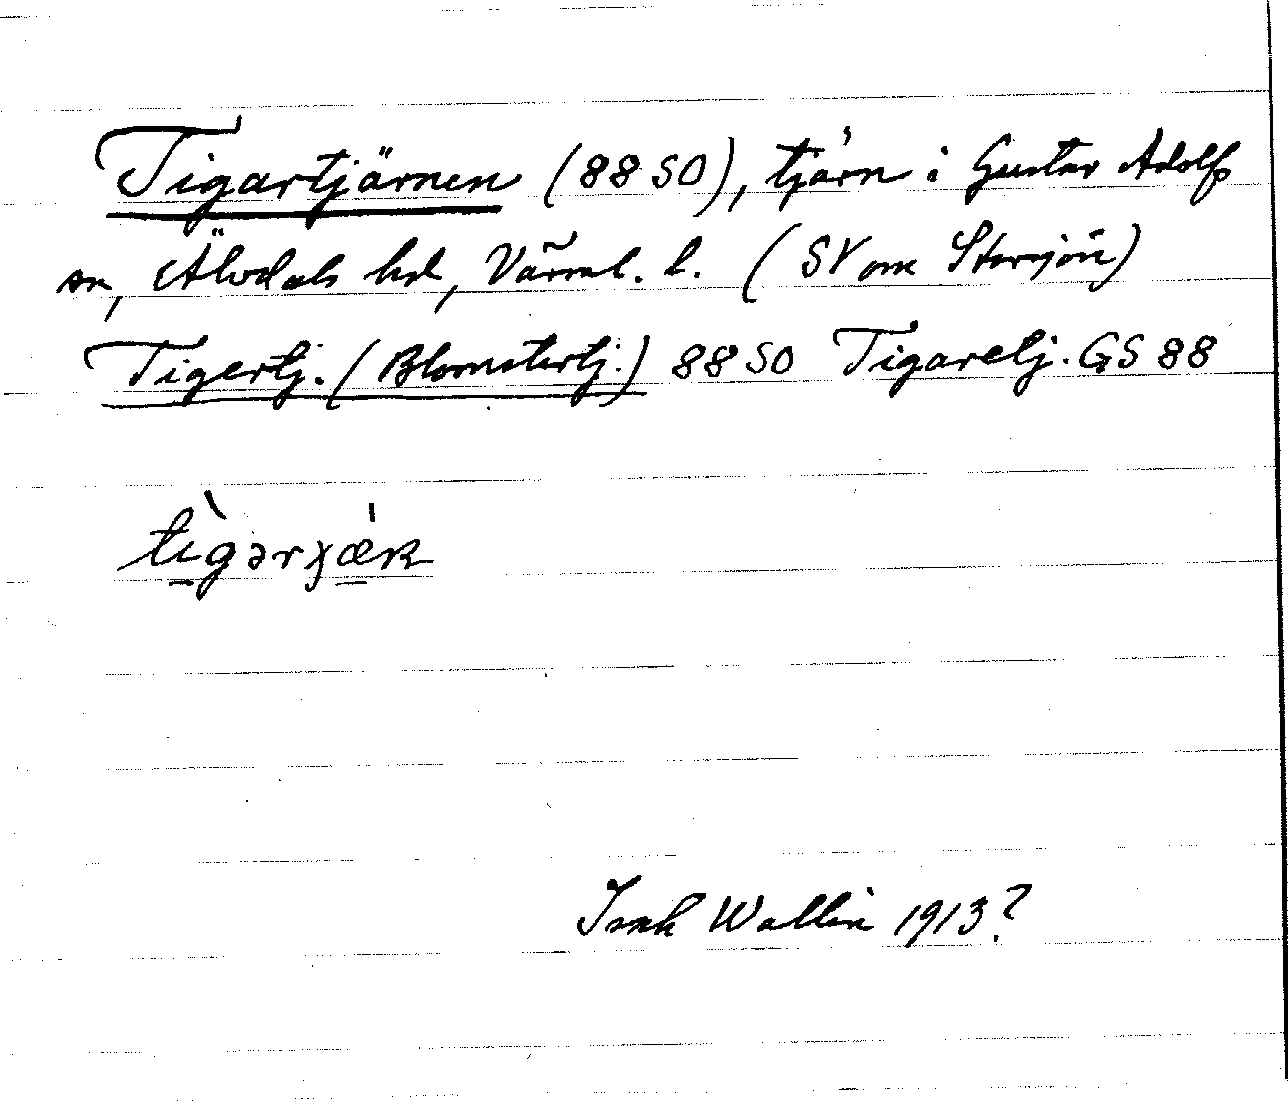 Tigartjärnen (88 SO), tjärn i Gustav Adolfs
sn, Älvdals hd, Värml. l. (SV om Storsjön)
Tigertj. (Blomstertj.) 88 SO Tigaretj. GS 88
Isak Wallin 1913?